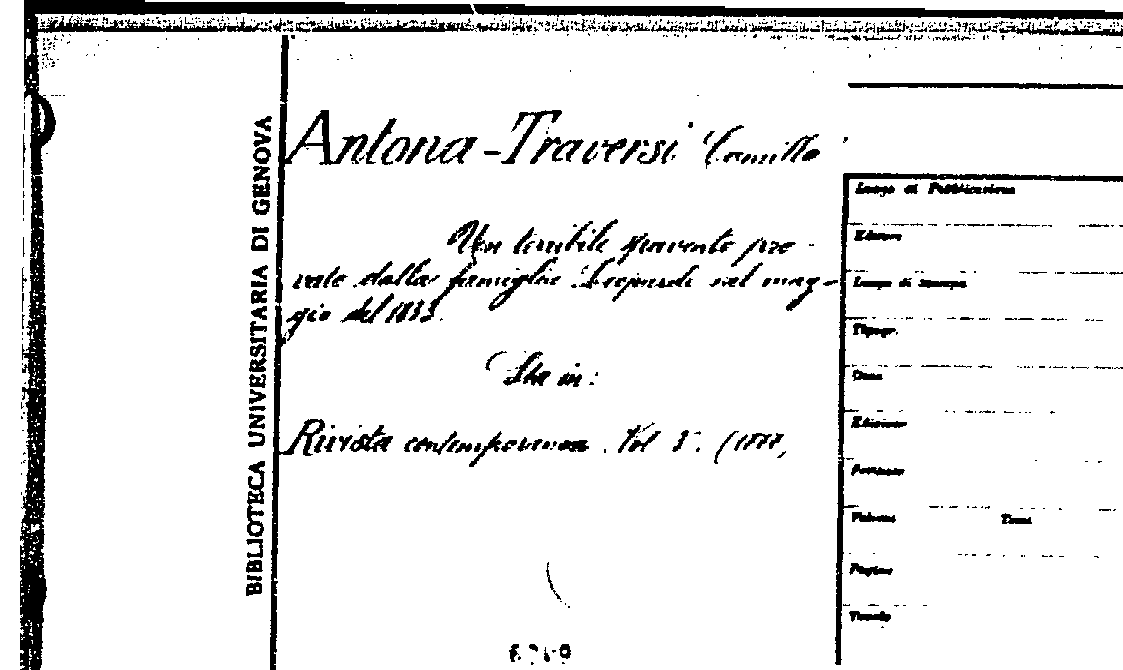 BIBLIOTECA UNIVERSITARIA DI GENOVA
Antona-Traversi Camillo
Un terribile spavento pro-
vato dalla famiglia Leopardi nel mag-
gio del 1833.
Sta in:
Rivista contemporanea. Vol
Luogo di Pubblicazione
Editore
Luogo di stampa
Tipogr.
Data
Edizione
Formato
Volumi Tomi
Pagine
Tavole